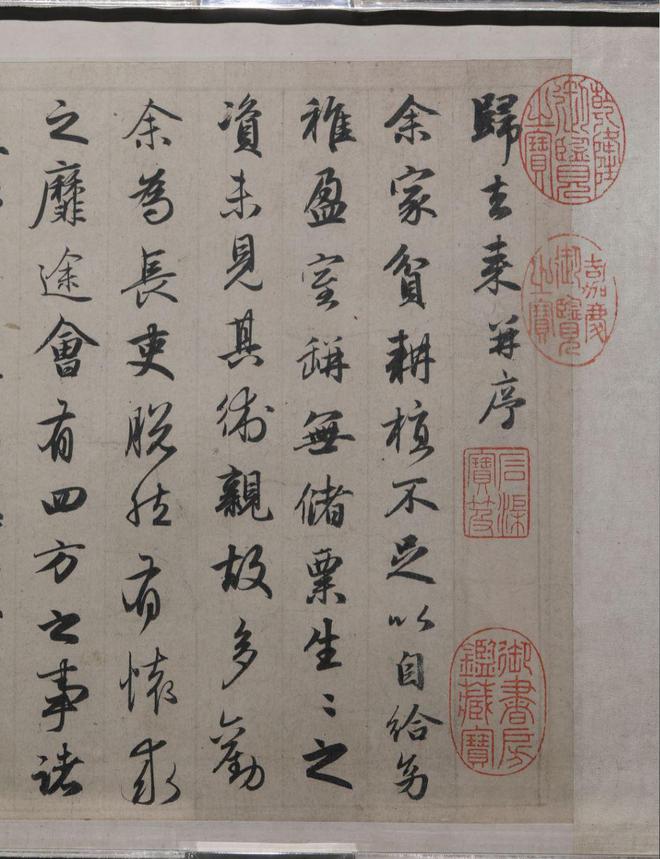 乾隆御覽之寶
嘉慶御覽之寶
歸去来并序
石渠寶笈
御書房鑑藏寶
余家貧耕植不足以自給幼
稚盈室缾無儲粟生〻之
資未見其術親故多勸
余為長吏脫然有懷求
之靡途會有四方之事諸